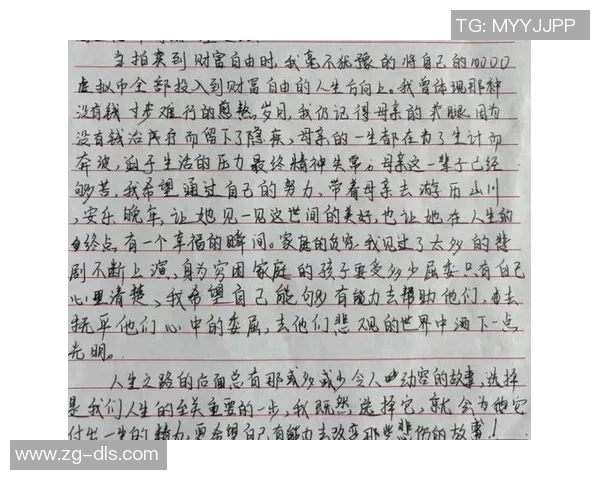 TG: MYYJJPP
当拍卖到财富自由时,我毫不犹豫的将自己的10000
虚拟币全部投入到财富自由的人生方向上。我曾体现那种
没有钱寸步难行的 岁月,我仍记得母亲的 腿因为
没有钱治疗而留下了隐疾,母亲的一生都在为了生计而
奔波,迫于生活的压力最终精神失常。母亲这一辈子已经
够苦,我希望通过自己的努力,带着母亲去游历山川
,安乐晚年,让她见一见这世间的美好,也让她在人生的
终点有一个幸福的瞬间。家庭的贫穷,我见过了太多的悲
剧不断上演,身为穷困家庭的孩子要受多少屈委只有自己
心里清楚,我希望自己能够有能力去帮助他们,去
抚平他们心中的委屈,去他们悲观的世界中洒下一点
光明。
人生之路的后面总有那或多或少令人动容的故事,选择
是我们人生的至关重要的一步,我既然选择它,就会为他
付出一生的精力,更希望自己有能力去改变那些悲伤的故事!
www.zg-dls.com